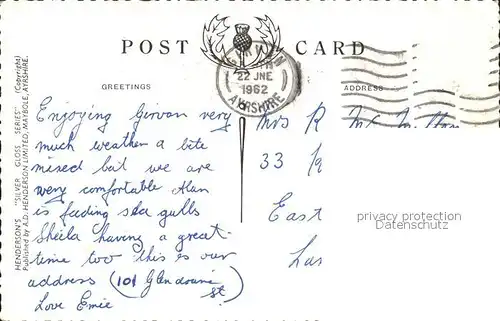 POST CARD
GIRVAN
22 JNE
1962
AYRSHIRE
GREETINGS
ADDRESS
HENDERSON'S "SILVER GLOSS SERIES" (Copyright)
Published by A.D. HENDERSON LIMITED, MAYBOLE, AYRSHIRE.
Enjoying Girvan very
much weather a bite
mixed but we are
very comfortable Alan
is feeding sea gulls
Sheila having a great
time too this is our
address (101 Glendoune
st)
Love Emie
Mrs R
33
East
Lar
privacy protection
Datenschutz